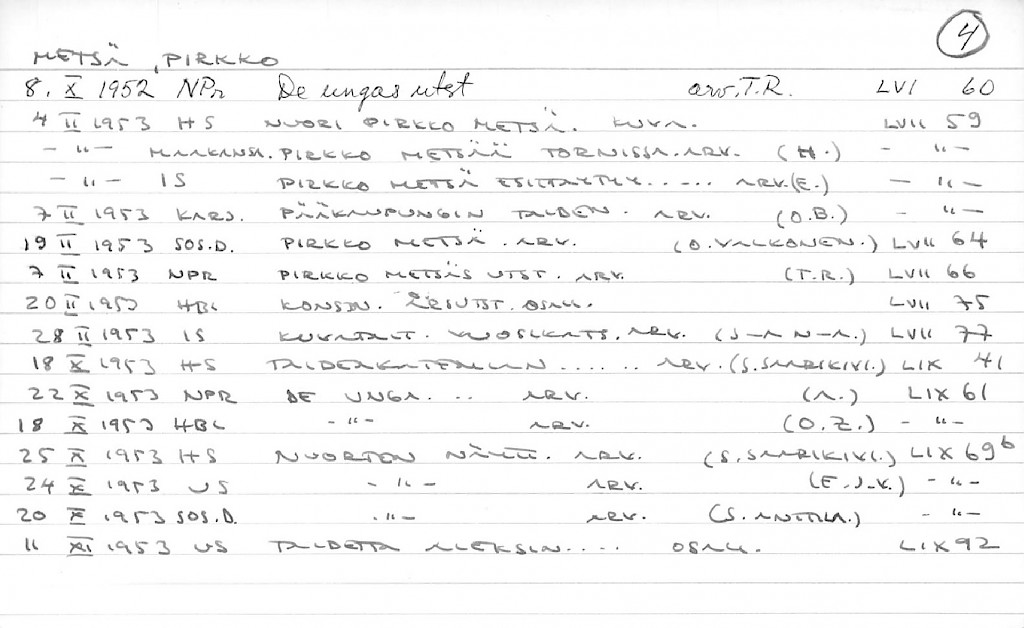 4
METSÄ, PIRKKO
8. X 1952 NPr De ungas utst arv. T.R. LVI 60
4 II 1953 HS NUORI PIRKKO METSÄ. KUVA. LVII 59
- " - MAAKANSA. PIRKKO METSÄÄ TORNISSA. ARV. (H.) - " -
- " - IS PIRKKO METSÄ ESITTÄYTYY..... ARV. (E.) - " -
7 II 1953 KARJ. PÄÄKAUPUNGIN TAIDEN. ARV. (O.B.) - " -
19 II 1953 SOS.D. PIRKKO METSÄ. ARV. (O. VALKONEN.) LVII 64
7 II 1953 NPR PIRKKO METSÄS UTST. ARV. (T.R.) LVII 66
20 II 1953 HBL KONSTN. ÅRSUTST. OSALL. LVII 75
28 II 1953 IS KUVATAIT. VUOSIKATS. ARV. (J-A N-A.) LVII 77
18 X 1953 HS TAIDEAKATEMIAN ...... ARV. (S. SAARIKIVI.) LIX 41
22 X 1953 NPR DE UNGA... ARV. (A.) LIX 61
18 X 1953 HBL - " - ARV. (O.Z.) - " -
25 X 1953 HS NUORTEN NÄYTT. ARV. (S. SAARIKIVI.) LIX 69b
24 X 1953 US - " - ARV. (E.J.V.) - " -
20 X 1953 SOS.D. - " - ARV. (S. ANTTILA.) - " -
11 XI 1953 US TAIDETTA ALEKSIN.... OSALL. LIX 92